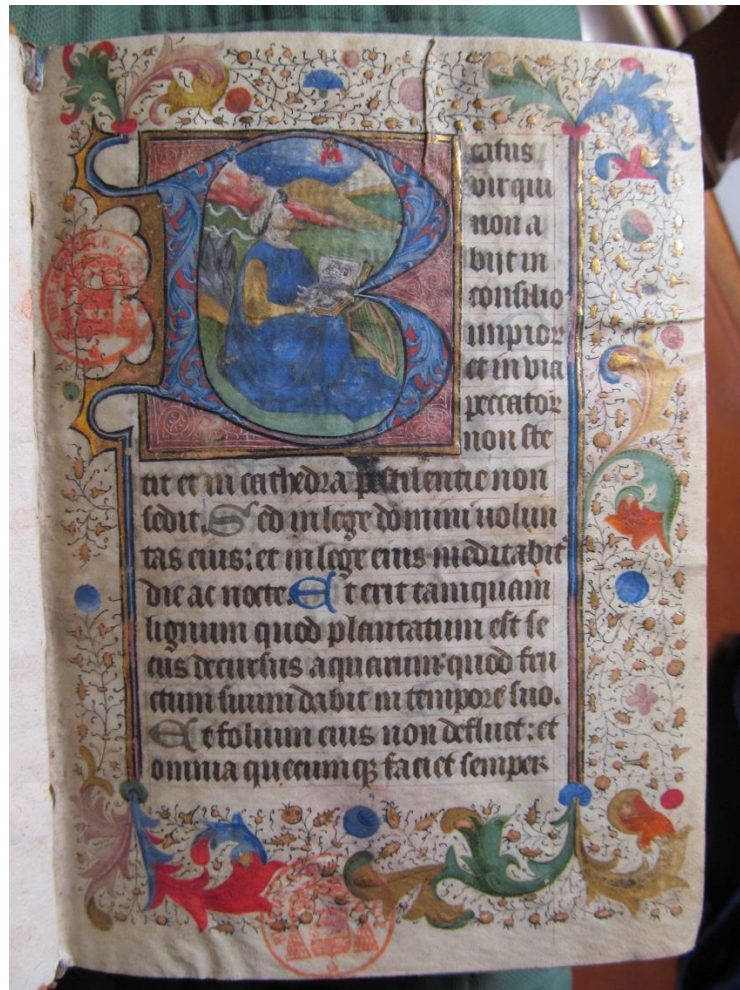 Beatus
vir qui
non a
bijt in
consilio
impior
et in via
peccator
non ste
tit et in cathedra pestilentie non
sedit. Sed in lege domini uolun
tas eius: et in lege eius meditabit
die ac nocte. Et erit tamquam
lignum quod plantatum est se
cus decursus aquarum quod fru
ctum suum dabit in tempore suo.
Et folium eius non defluet: et
omnia quecumq faciet semper